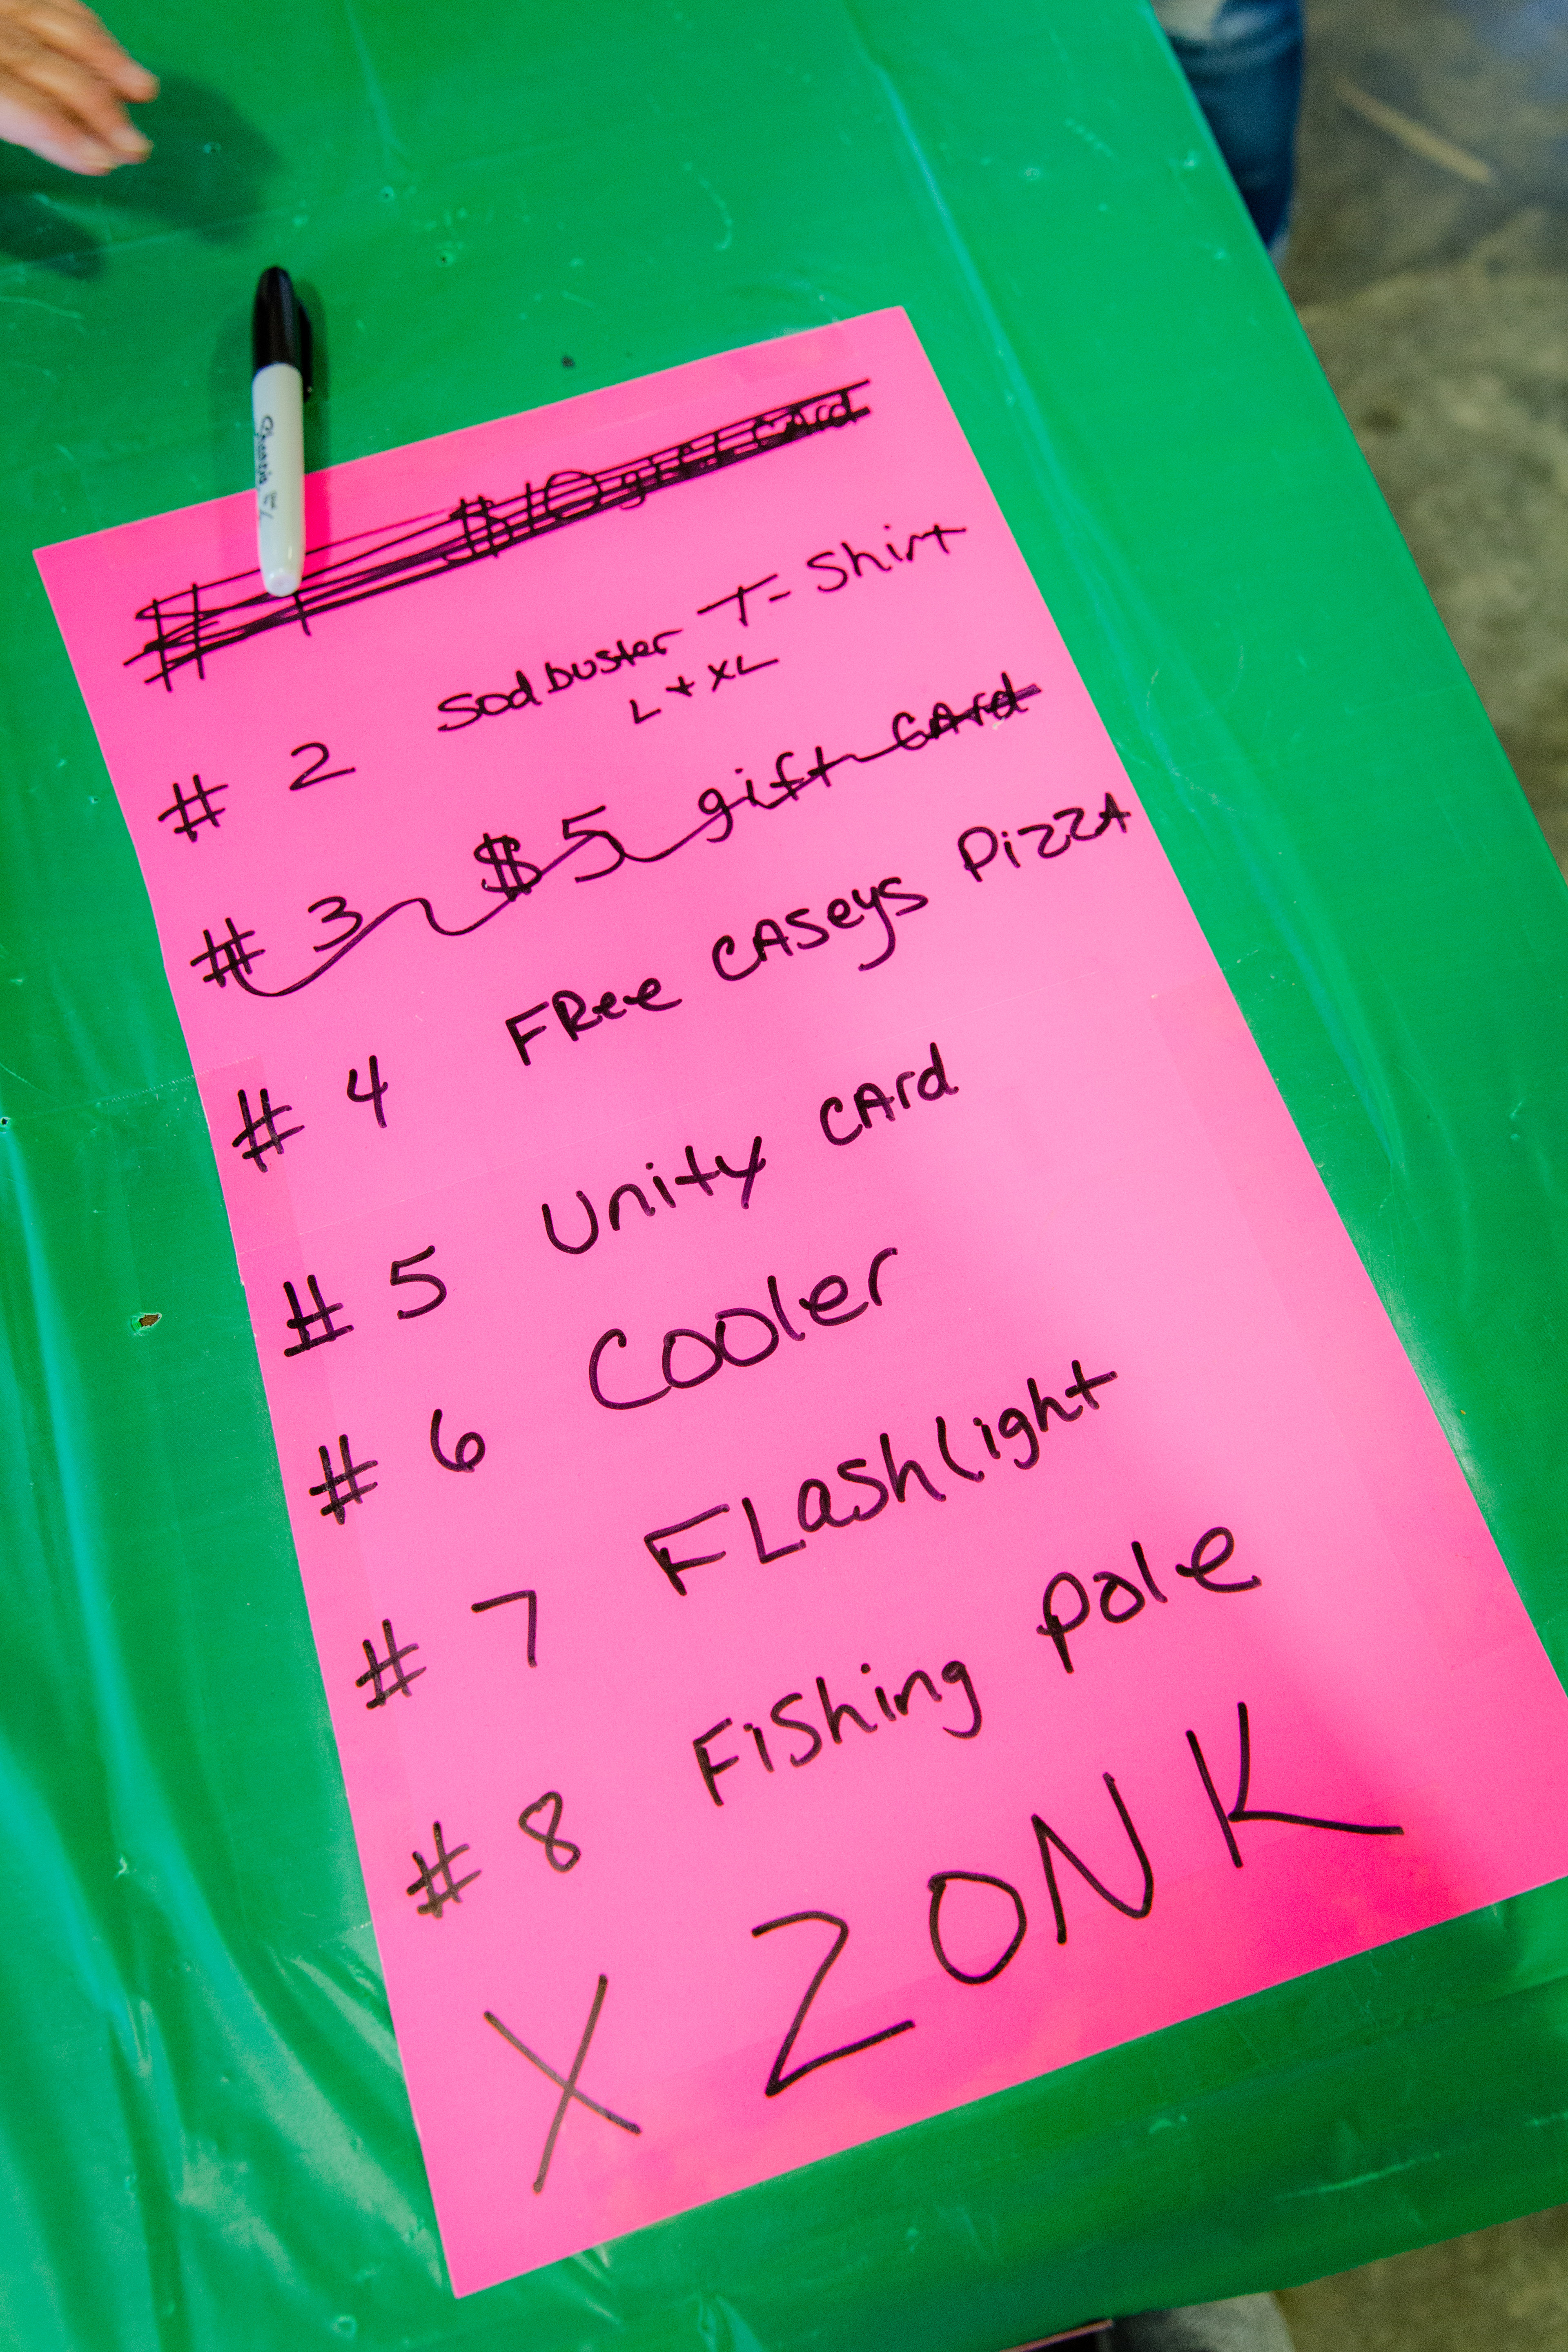 Sharpie
# 1 $10 gift card
# 2 Sodbuster T-Shirt
L + XL
# 3 $5 gift CArd
# 4 FRee CASeys PizzA
# 5 Unity CArd
# 6 Cooler
# 7 FLashlight
# 8 FiShing pole
X ZONK